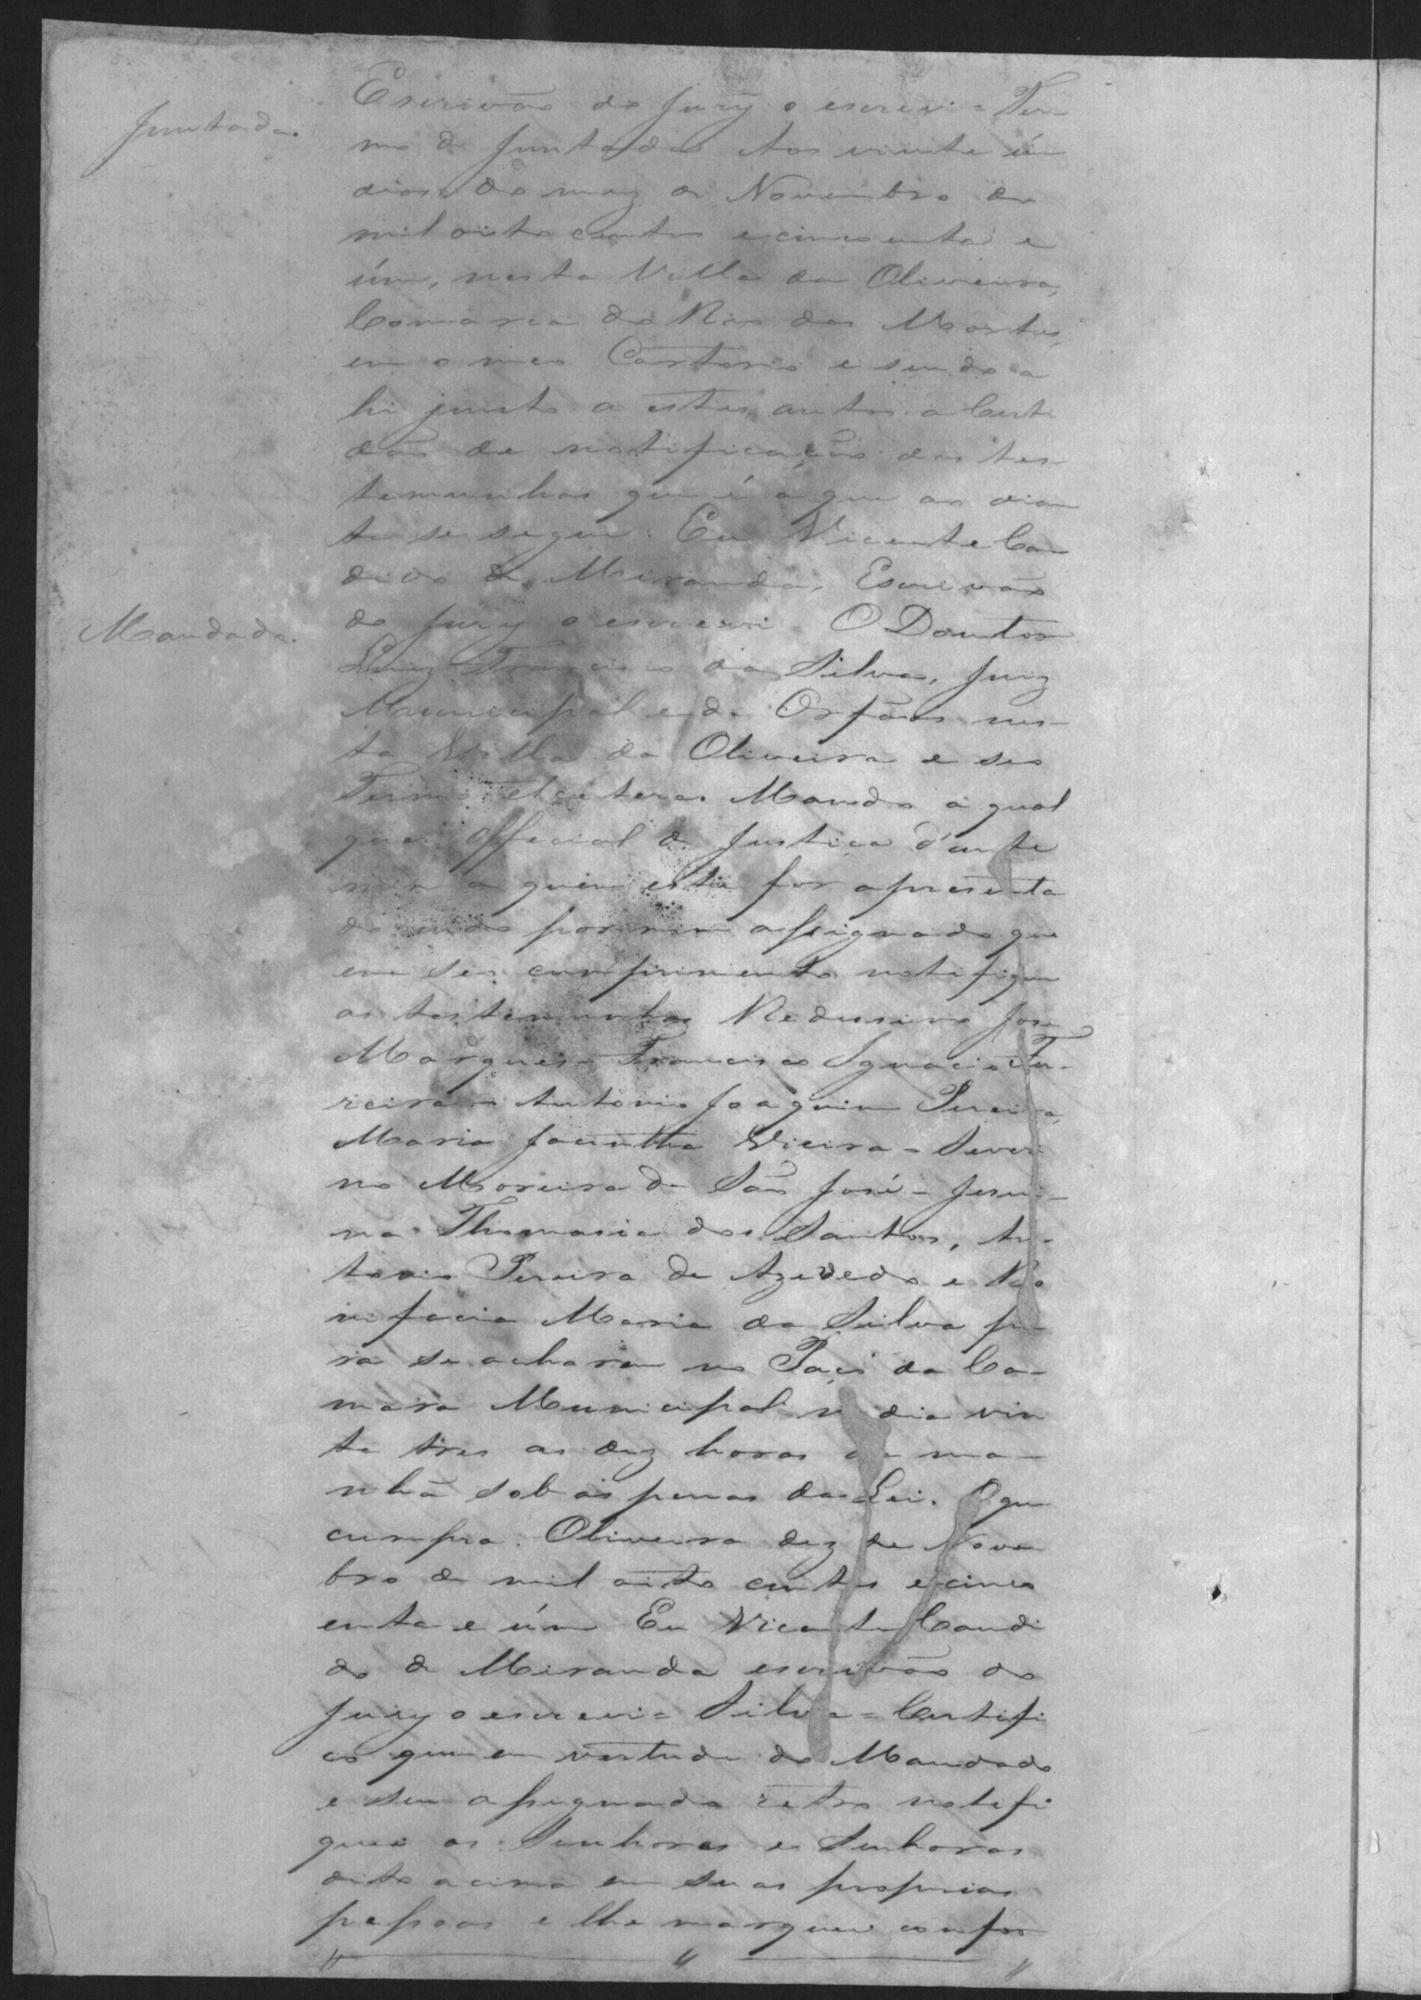 Juntada.
Escrivão do Jury o escrevi = Ter-
mo de Juntada Aos vinte úm
dias do mez de Novembro de
mil oito centos e cincoenta e
úm, nesta Villa da Oliveira,
Comarca do Rio das Mortes,
em o meo Cartorio e sendo a
hi junto a estes autos a Certi
dão de notificação das tes-
temunhas que é a que ao dian
te se segue. Eu Vicente Can
dido de Miranda, Escrivão
do Jury o escrevi O Doutor
Mandado.
Luiz Francisco da Silva, Juiz
Municipal e de Orfãos nes-
ta Villa da Oliveira e seo
Termo etcetera. Mando a qual
quer official de Justiça d'ante
mim a quem este for apresenta
do indo por mim assignado que
em seo cumprimento notifique
as testemunhas Redusino José
Marques = Francisco Ignacio Fer-
reira = Antonio Joaquim Pereira,
Maria Jacintha Vieira = Severi
no Moreira de São José = Jesui-
na Thomasia dos Santos, An-
tonio Pereira de Azevedo e Bo
nifacia Maria da Silva pa
ra se acharem no Paço da Ca-
mara Municipal no dia vin
te tres as dez horas da ma-
nhã sob as penas da Lei. O que
cumpra. Oliveira dez de Novem
bro de mil oito centos e cinco
enta e úm Eu Vicente Candi
do de Miranda escrivão do
Jury o escrevi = Silva = Certifi
co que em vertude do Mandado
e seu assignado retro notefi
quei os Senhores e Senhoras
dito acima em suas proprias
pessoas e lhe marquei confor